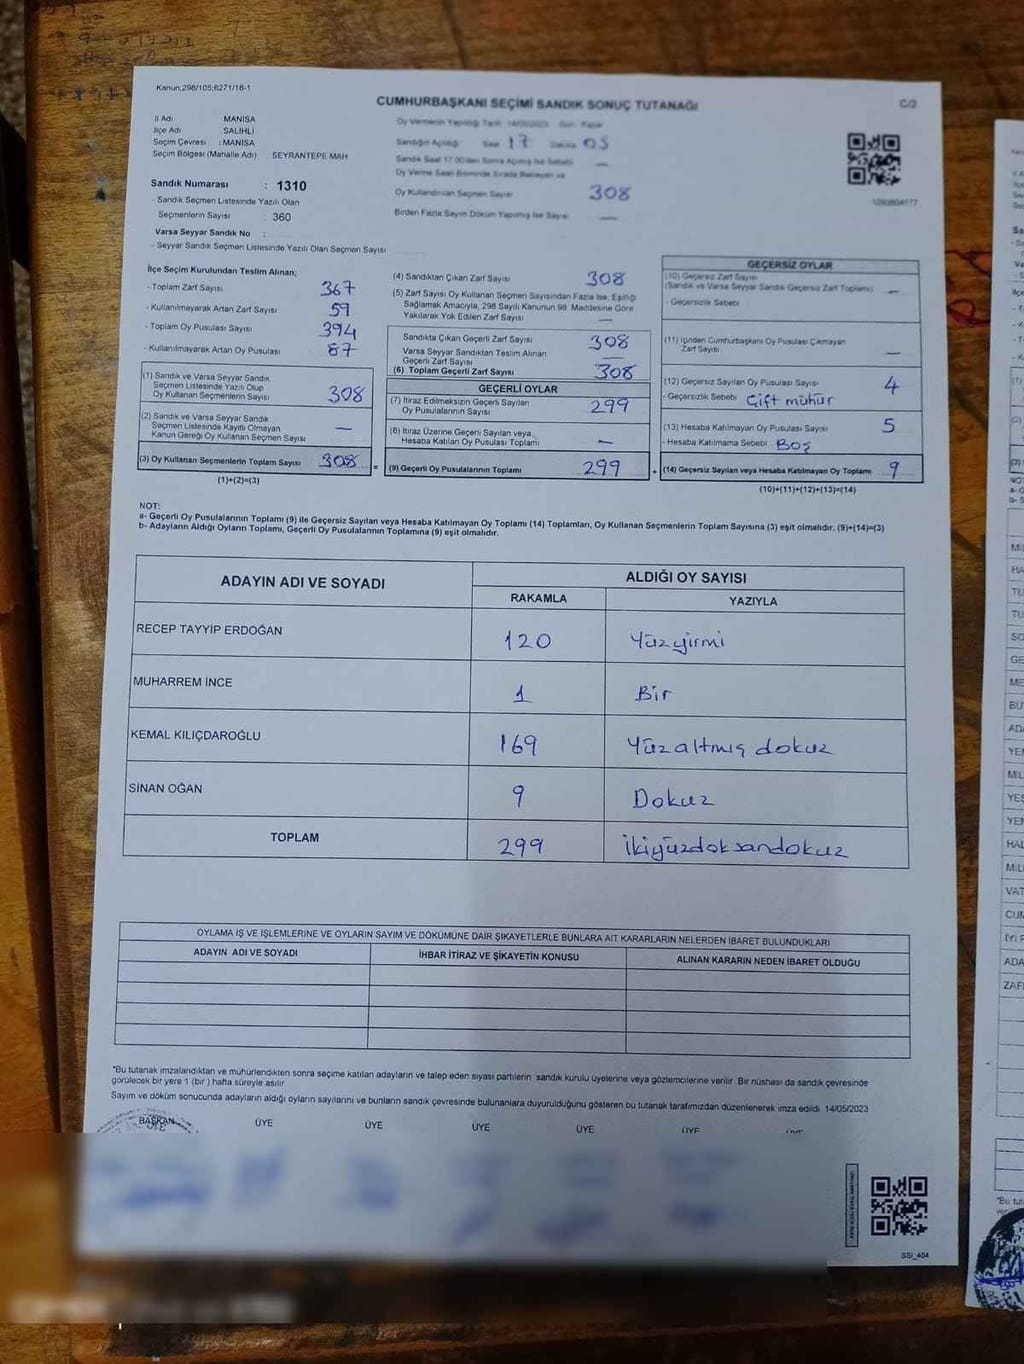 Kanun;298/105,6271/18-1
CUMHURBAŞKANI SEÇİMİ SANDIK SONUÇ TUTANAĞI
C/2
İl Adı MANİSA
İlçe Adı SALİHLİ
Seçim Çevresi : MANİSA
Seçim Bölgesi (Mahalle Adı) : SEYRANTEPE MAH
Sandık Numarası : 1310
- Sandık Seçmen Listesinde Yazılı Olan
Seçmenlerin Sayısı : 360
Varsa Seyyar Sandık No :
- Seyyar Sandık Seçmen Listesinde Yazılı Olan Seçmen Sayısı
Oy Vermenin Yapıldığı Tarih 14/05/2023 Gün Pazar
Sandığın Açıldığı Saat 17 Dakika 05
Sandık Saat 17.00'den Sonra Açılmış İse Sebebi —
Oy Verme Saati Bitiminde Sırada Bekleyen ve
Oy Kullandırılan Seçmen Sayısı 308
Birden Fazla Sayım Döküm Yapılmış İse Sayısı —
İlçe Seçim Kurulundan Teslim Alınan;
- Toplam Zarf Sayısı 367
- Kullanılmayarak Artan Zarf Sayısı 59
- Toplam Oy Pusulası Sayısı 394
- Kullanılmayarak Artan Oy Pusulası 87
(1) Sandık ve Varsa Seyyar Sandık
Seçmen Listesinde Yazılı Olup
Oy Kullanan Seçmenlerin Sayısı 308
(2) Sandık ve Varsa Seyyar Sandık
Seçmen Listesinde Kayıtlı Olmayan
Kanun Gereği Oy Kullanan Seçmen Sayısı —
(3) Oy Kullanan Seçmenlerin Toplam Sayısı 308
(1)+(2)=(3)
(4) Sandıktan Çıkan Zarf Sayısı 308
(5) Zarf Sayısı Oy Kullanan Seçmen Sayısından Fazla İse, Eşitliği
Sağlamak Amacıyla, 298 Sayılı Kanunun 98. Maddesine Göre
Yakılarak Yok Edilen Zarf Sayısı —
Sandıkta Çıkan Geçerli Zarf Sayısı 308
Varsa Seyyar Sandıktan Teslim Alınan
Geçerli Zarf Sayısı —
(6) Toplam Geçerli Zarf Sayısı 308
GEÇERLİ OYLAR
(7) İtiraz Edilmeksizin Geçerli Sayılan
Oy Pusulalarının Sayısı 299
(8) İtiraz Üzerine Geçerli Sayılan veya
Hesaba Katılan Oy Pusulası Toplamı —
= (9) Geçerli Oy Pusulalarının Toplamı 299
GEÇERSİZ OYLAR
(10) Geçersiz Zarf Sayısı
(Sandık ve Varsa Seyyar Sandık Geçersiz Zarf Toplamı) —
- Geçersizlik Sebebi
(11) İçinden Cumhurbaşkanı Oy Pusulası Çıkmayan
Zarf Sayısı —
(12) Geçersiz Sayılan Oy Pusulası Sayısı 4
- Geçersizlik Sebebi Çift mühür
(13) Hesaba Katılmayan Oy Pusulası Sayısı 5
- Hesaba Katılmama Sebebi Boş
+ (14) Geçersiz Sayılan veya Hesaba Katılmayan Oy Toplamı 9
(10)+(11)+(12)+(13)=(14)
NOT:
a- Geçerli Oy Pusulalarının Toplamı (9) ile Geçersiz Sayılan veya Hesaba Katılmayan Oy Toplamı (14) Toplamları, Oy Kullanan Seçmenlerin Toplam Sayısına (3) eşit olmalıdır. (9)+(14)=(3)
b- Adayların Aldığı Oyların Toplamı, Geçerli Oy Pusulalarının Toplamına (9) eşit olmalıdır.
ADAYIN ADI VE SOYADI ALDIĞI OY SAYISI
RAKAMLA YAZIYLA
RECEP TAYYİP ERDOĞAN 120 Yüzyirmi
MUHARREM İNCE 1 Bir
KEMAL KILIÇDAROĞLU 169 Yüzaltmış dokuz
SİNAN OĞAN 9 Dokuz
TOPLAM 299 İkiyüzdoksandokuz
OYLAMA İŞ VE İŞLEMLERİNE VE OYLARIN SAYIM VE DÖKÜMÜNE DAİR ŞİKAYETLERLE BUNLARA AİT KARARLARIN NELERDEN İBARET BULUNDUKLARI
ADAYIN ADI VE SOYADI İHBAR İTİRAZ VE ŞİKAYETİN KONUSU ALINAN KARARIN NEDEN İBARET OLDUĞU
*Bu tutanak imzalandıktan ve mühürlendikten sonra seçime katılan adayların ve talep eden siyasi partilerin sandık kurulu üyelerine veya gözlemcilerine verilir. Bir nüshası da sandık çevresinde
görülecek bir yere 1 (bir) hafta süreyle asılır.
Sayım ve döküm sonucunda adayların aldığı oyların sayılarını ve bunların sandık çevresinde bulunanlara duyurulduğunu gösteren bu tutanak tarafımızdan düzenlenerek imza edildi. 14/05/2023
BAŞKAN ÜYE ÜYE ÜYE ÜYE ÜYE ÜYE
SSİ_404